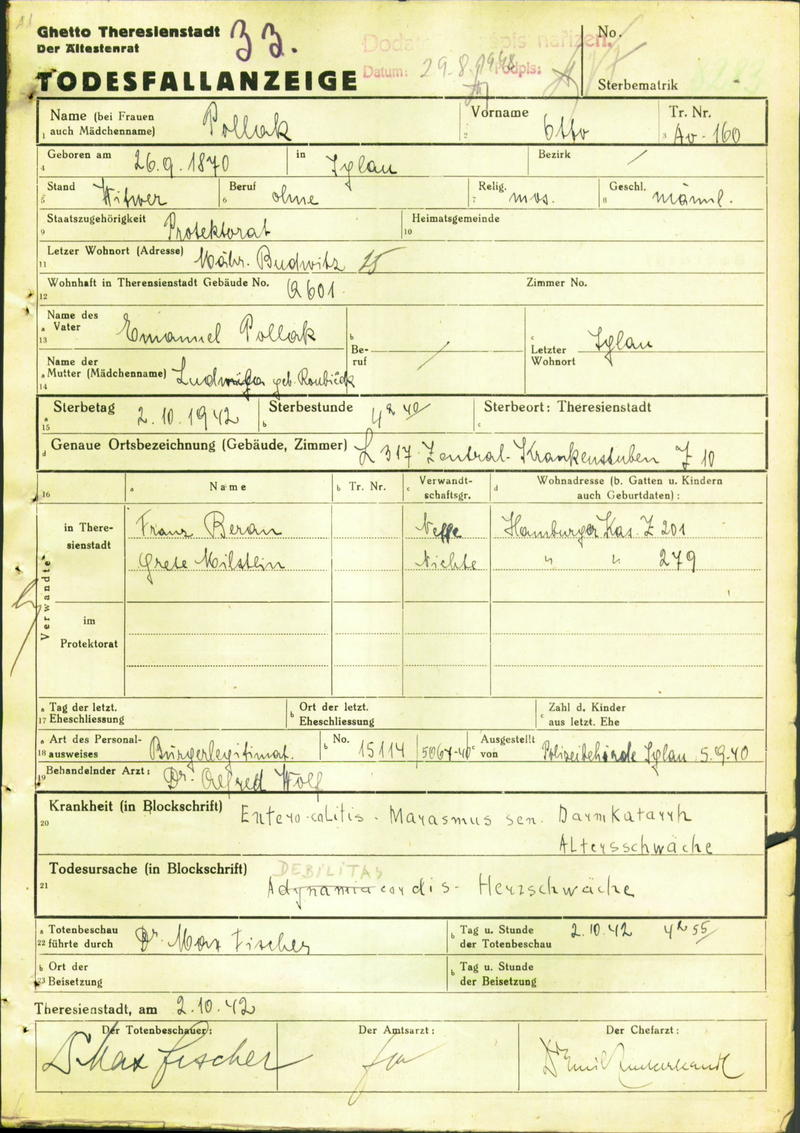 Ghetto Theresienstadt 33.
Der Ältestenrat
TODESFALLANZEIGE
Datum: 29.8.1948 Podpis:
No.
Sterbematrik
Name (bei Frauen auch Mädchenname) Pollak Vorname Otto Tr. Nr. Av-160
1 2 3
Geboren am 26.9.1870 in Iglau Bezirk /
4
Stand Witwer Beruf ohne Relig. mos. Geschl. männl.
5 6 7 8
Staatszugehörigkeit Protektorat Heimatsgemeinde
9 10
Letzer Wohnort (Adresse) Mähr. Budwitz 15
11
Wohnhaft in Theresienstadt Gebäude No. Q 601 Zimmer No.
12
a Name des Vater Emanuel Pollak b Beruf / c Letzter Wohnort Iglau
13
a Name der Mutter (Mädchenname) Ludwiga geb. Roubíček
14
a Sterbetag 2.10.1942 b Sterbestunde 4h 40 c Sterbeort: Theresienstadt
15
d Genaue Ortsbezeichnung (Gebäude, Zimmer) L 317 Zentral-Krankenstuben Z 10
16 a Name b Tr. Nr. c Verwandtschaftsgr. d Wohnadresse (b. Gatten u. Kindern auch Geburtdaten):
Verwandte
in Theresienstadt Franz Beran Neffe Hamburger Kas. Z 201
Grete Milstein Nichte " " 279
im Protektorat
a Tag der letzt. Eheschliessung b Ort der letzt. Eheschliessung c Zahl d. Kinder aus letzt. Ehe
17
a Art des Personalausweises Bürgerlegitimat. b No. 15114 5067-40 c Ausgestellt von Polizeibehörde Iglau 5.9.40
18
Behandelnder Arzt: Dr. Alfred Wolf
19
Krankheit (in Blockschrift) Entero-colitis - Marasmus sen. Darmkatarrh
20 Altersschwäche
Todesursache (in Blockschrift) DEBILITAS
21 Adynamia cordis - Herzschwäche
a Totenbeschau führte durch Dr. Max Fischer b Tag u. Stunde der Totenbeschau 2.10.42 4h 55
22
b Ort der Beisetzung b Tag u. Stunde der Beisetzung
23
Theresienstadt, am 2.10.42
Der Totenbeschauer: Der Amtsarzt: Der Chefarzt:
Dr Max Fischer Dr Emil